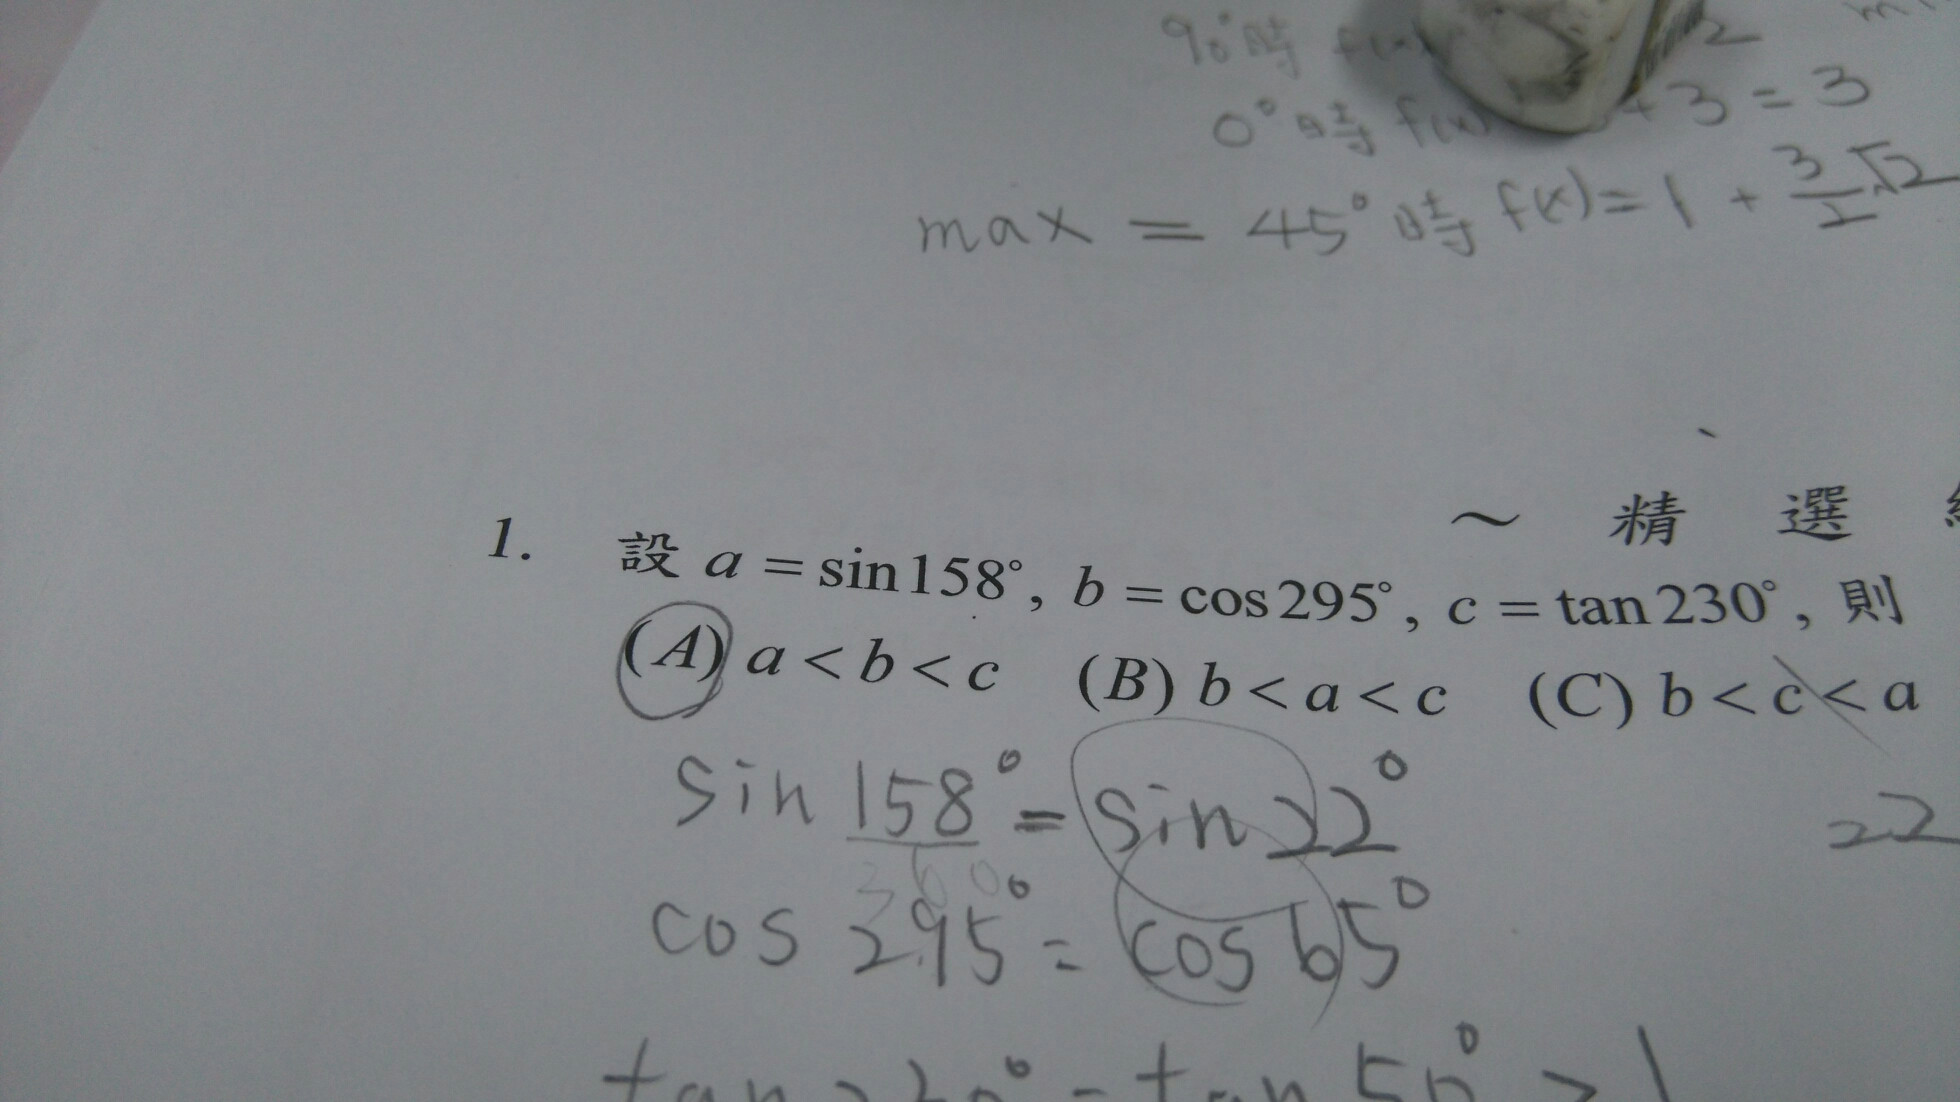 90°時 f(x)
0°時 f(x) +3=3
max = 45°時 f(x)=1+3/2√2
～ 精 選
1. 設 a = sin158°, b = cos295°, c = tan230°, 則
(A) a < b < c (B) b < a < c (C) b < c < a
sin 158° = sin 22°
22
360
cos 295° = cos 65°
tan 230° = tan 50° > 1